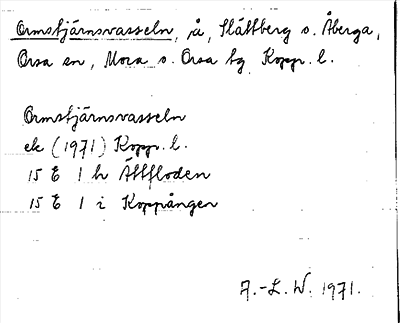 Ormstjärnsvasseln, å, Slättberg o. Åberga,
Orsa sn, Mora o. Orsa tg Kopp. l.
Ormstjärnsvasseln
ek (1971) Kopp. l.
15 E 1 h Ältfloden
15 E 1 i Koppången
A.-L. W. 1971.